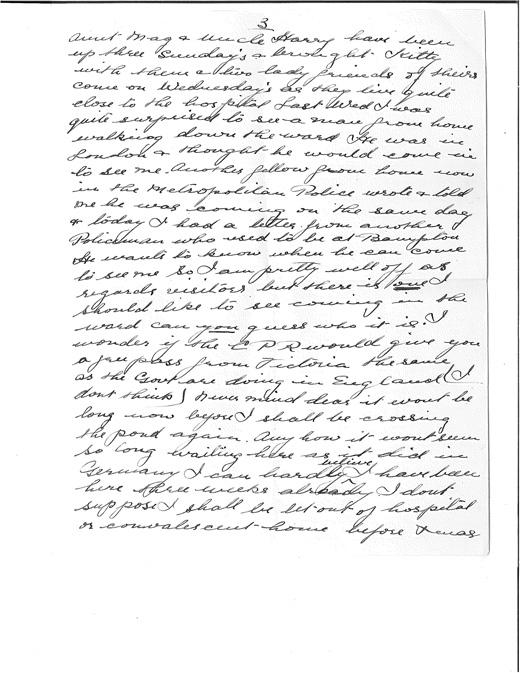 3
Aunt Mag & Uncle Harry have been
up three Sunday's & brought Kitty
with them & two lady friends of theirs
come on Wednesday's as they live quite
close to the hospital Last Wed I was
quite surprised to see a man from home
walking down the ward He was in
London & thought he would come in
to see me. Another fellow from home now
in the Metropolitan Police wrote & told
me he was coming on the same day
& today I had a letter from another
Policeman who used to be at Bampton
He wants to know when he can come
to see me so I am pretty well off as
regards visitors but there is one I
should like to see coming in the
ward can you guess who it is? I
wonder if the C P R would give you
a free pass from Victoria the same
as the Govt are doing in England (I
dont think) Never mind dear it wont be
long now before I shall be crossing
the pond again. Any how it wont seem
so long waiting here as it did in
Germany I can hardly believe I have been
here three weeks already I dont
suppose I shall be let out of hospital
or convalescent home before Xmas